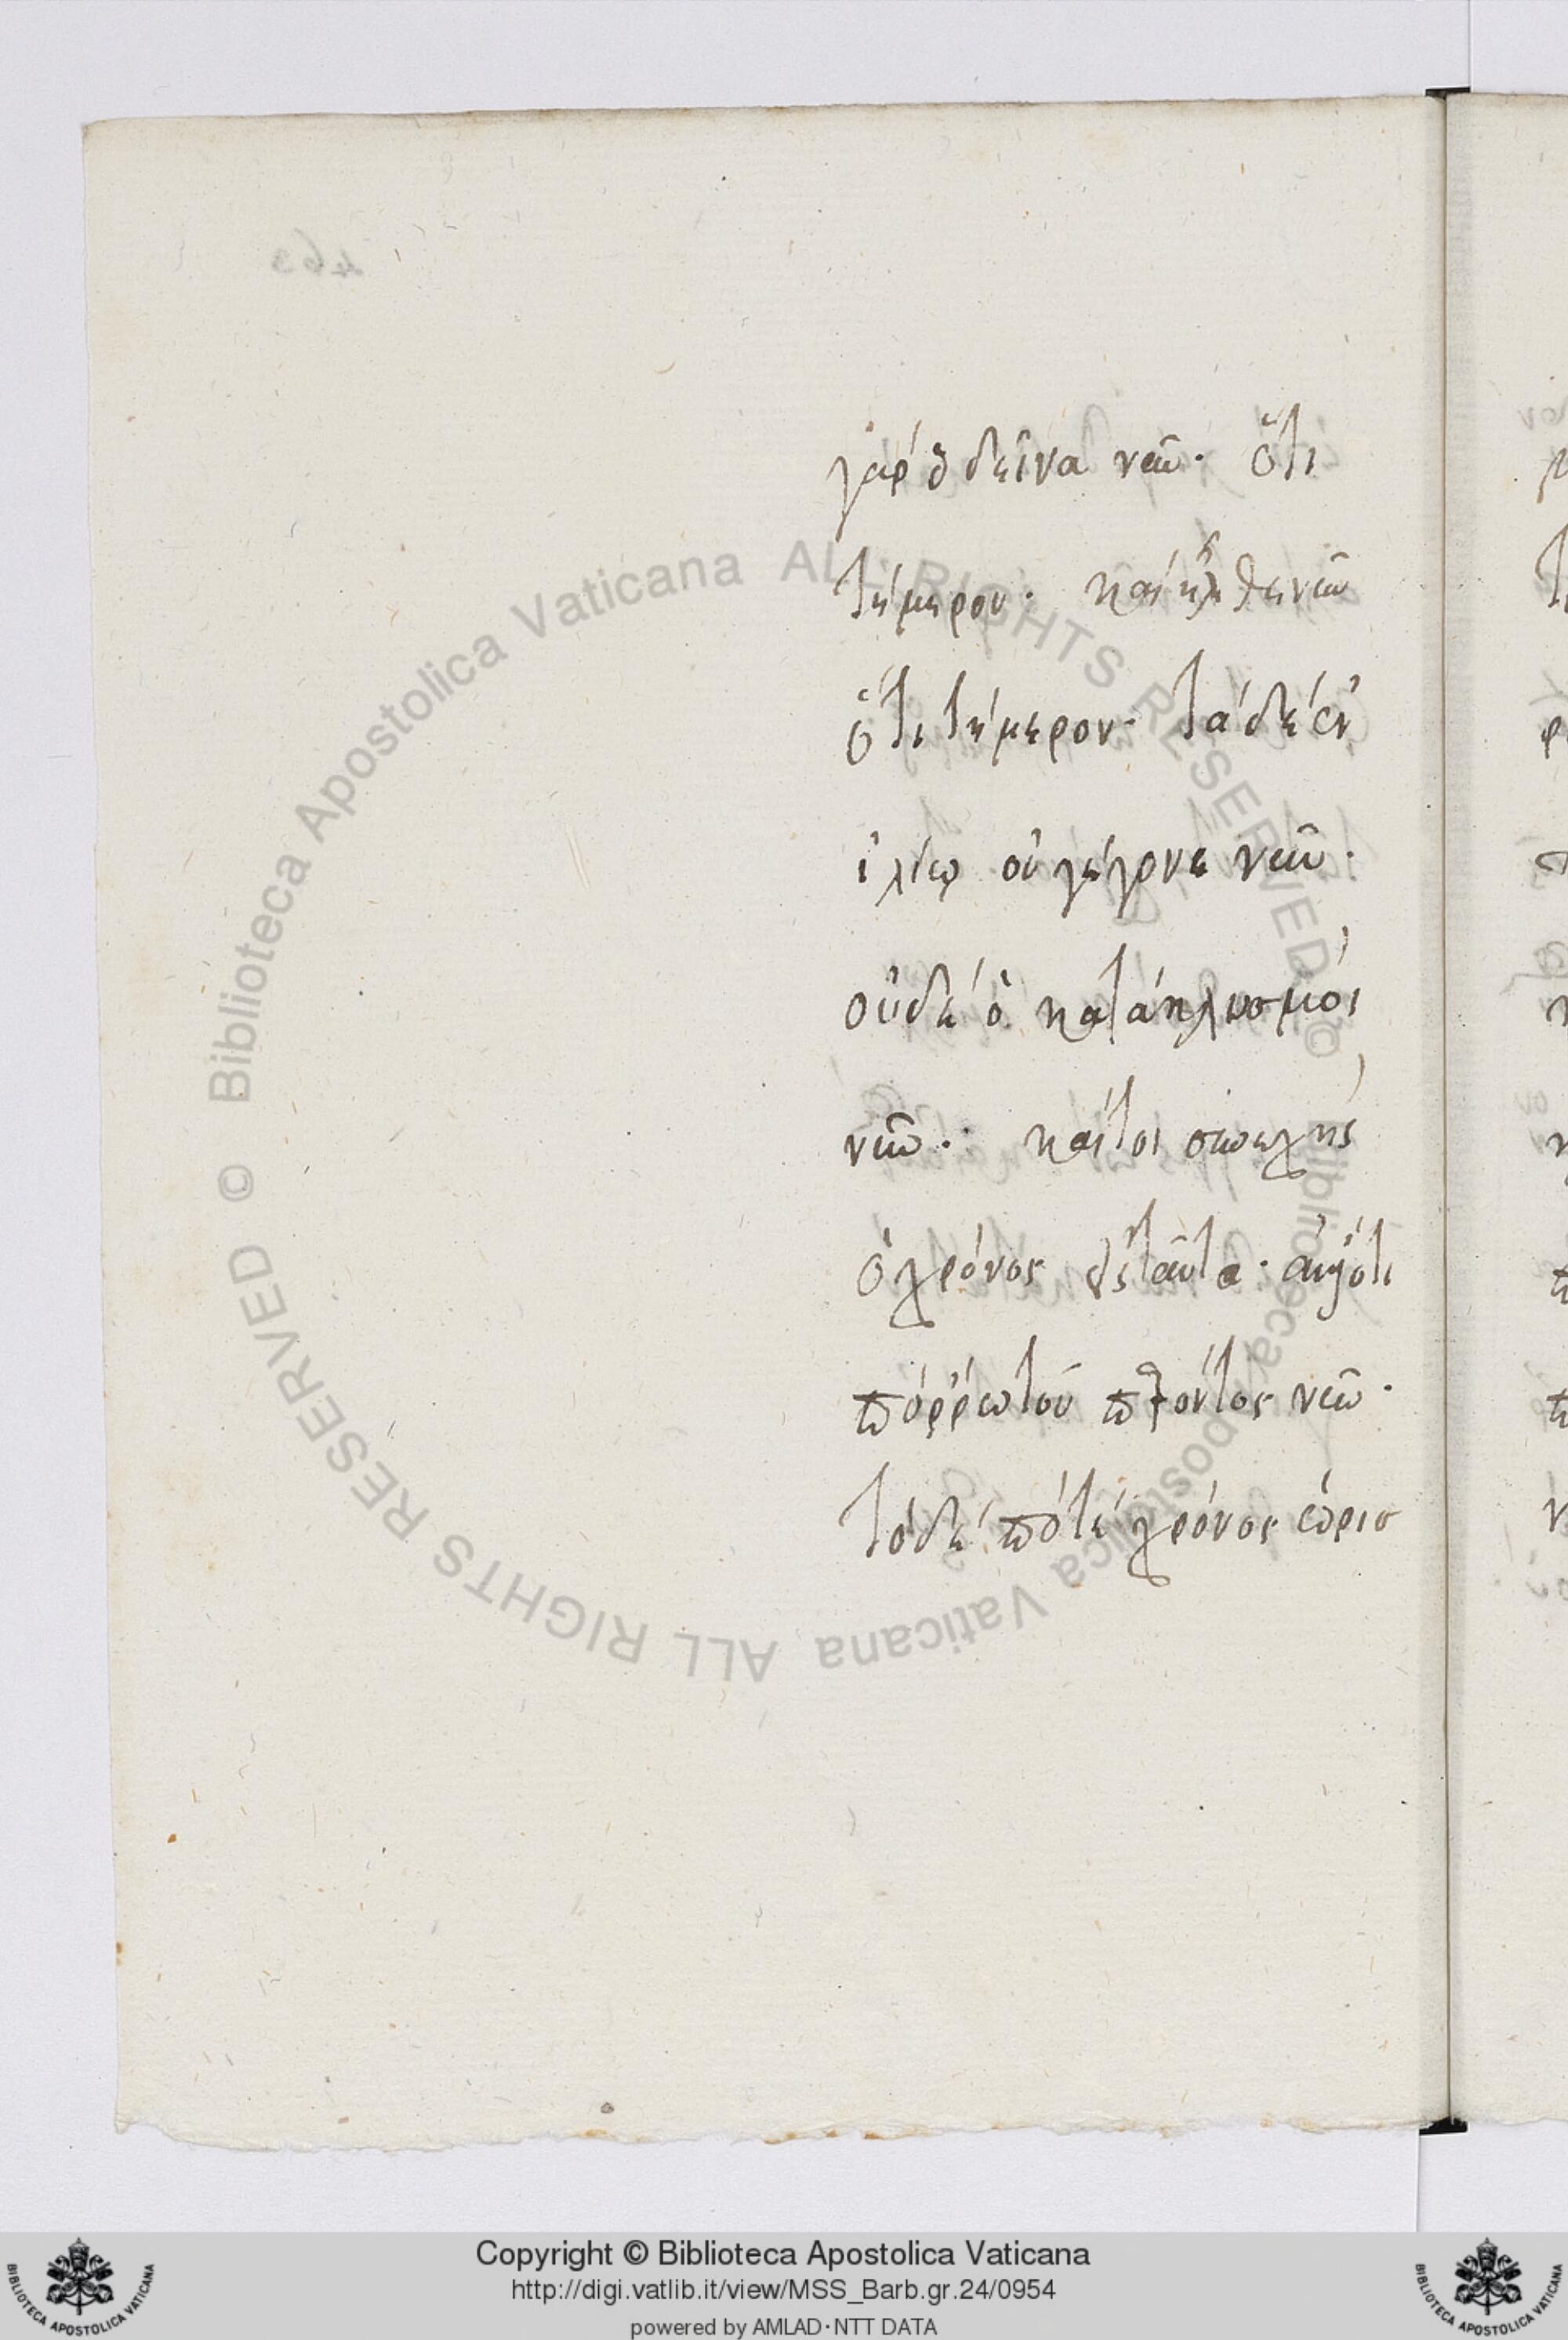 463
γάρ ὁ δεῖνα νεῶ· ὅτι
τήμερον· καὶ ἦλθε νεῶ
ὅτι τήμερον· τὰ δέ ἐν
ἰλίῳ οὐ γέγονε νεῶ·
οὐδέ ὁ κατακλυσμός
νεῶ· καίτοι συνεχής
ὁ χρόνος εἰς ταῦτα· ἀλλ' ὅτι
πόρρω τοῦ παρόντος νεῶ·
τὸ δέ ποτέ χρόνος ὡρισ
Copyright © Biblioteca Apostolica Vaticana
http://digi.vatlib.it/view/MSS_Barb.gr.24/0954
powered by AMLAD·NTT DATA
© Biblioteca Apostolica Vaticana ALL RIGHTS RESERVED
© Biblioteca Apostolica Vaticana ALL RIGHTS RESERVED
BIBLIOTECA APOSTOLICA VATICANA
BIBLIOTECA APOSTOLICA VATICANA